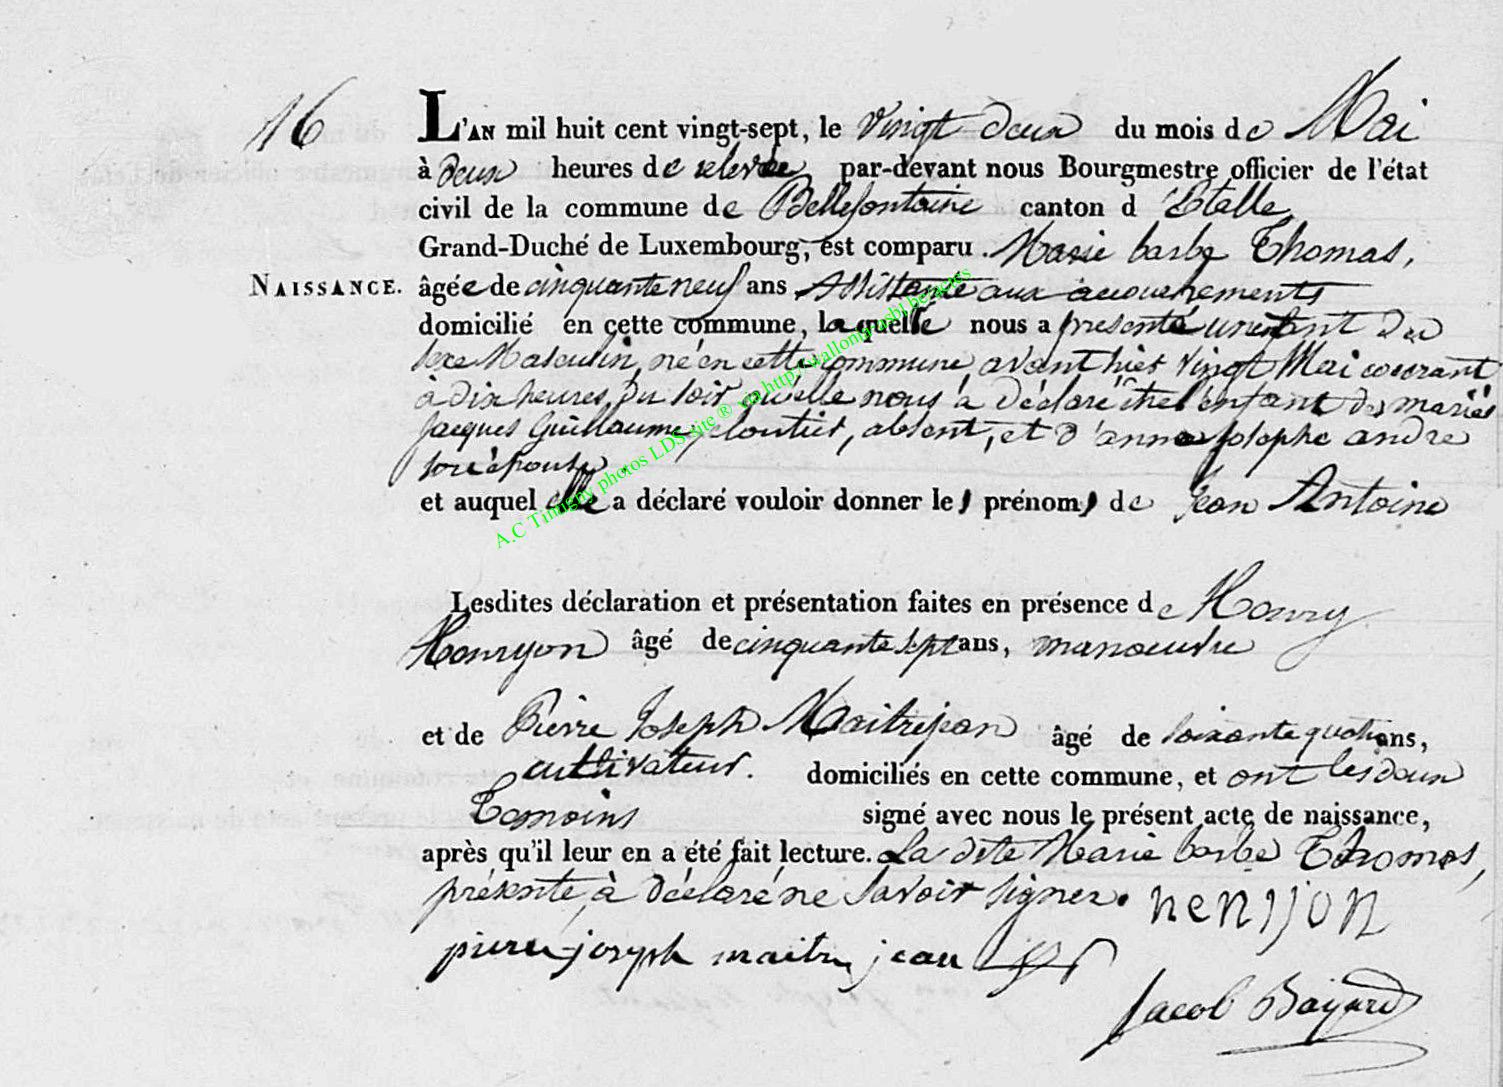 16
L'AN mil huit cent vingt-sept, le vingt deux du mois de Mai
à deux heures de relevée par-devant nous Bourgmestre officier de l'état
civil de la commune de Bellefontaine canton d'Etalle,
Grand-Duché de Luxembourg, est comparu Marie barbe Thomas,
NAISSANCE. âgée de cinquante neuf ans Assistante aux accouchements
domicilié en cette commune, laquelle nous a presenté unenfant du
sexe Masculin, né en cette commune avant hier vingt Mai courant
à dix heures du soir qu'elle nous a déclaré être l'enfant des mariés
Jacques Guillaume, cloutier, absent, et d'anne josephe andre
son épouse
et auquel elle a déclaré vouloir donner les prénoms de jean Antoine
Lesdites déclaration et présentation faites en présence de Henry
Henryon âgé de cinquante sept ans, manoeuvre
et de Pierre Joseph Maitrejean âgé de soixante quatre ans,
cultivateur. domiciliés en cette commune, et ont les deux
Temoins signé avec nous le présent acte de naissance,
après qu'il leur en a été fait lecture. La dite Marie barbe Thomas,
présente, à déclaré ne savoir signer.
henijon
pierre joseph maitre jean
Jacob Bayard
A.C Tintigny photos LDS site ® via http://wallonia-asbl.be/actes